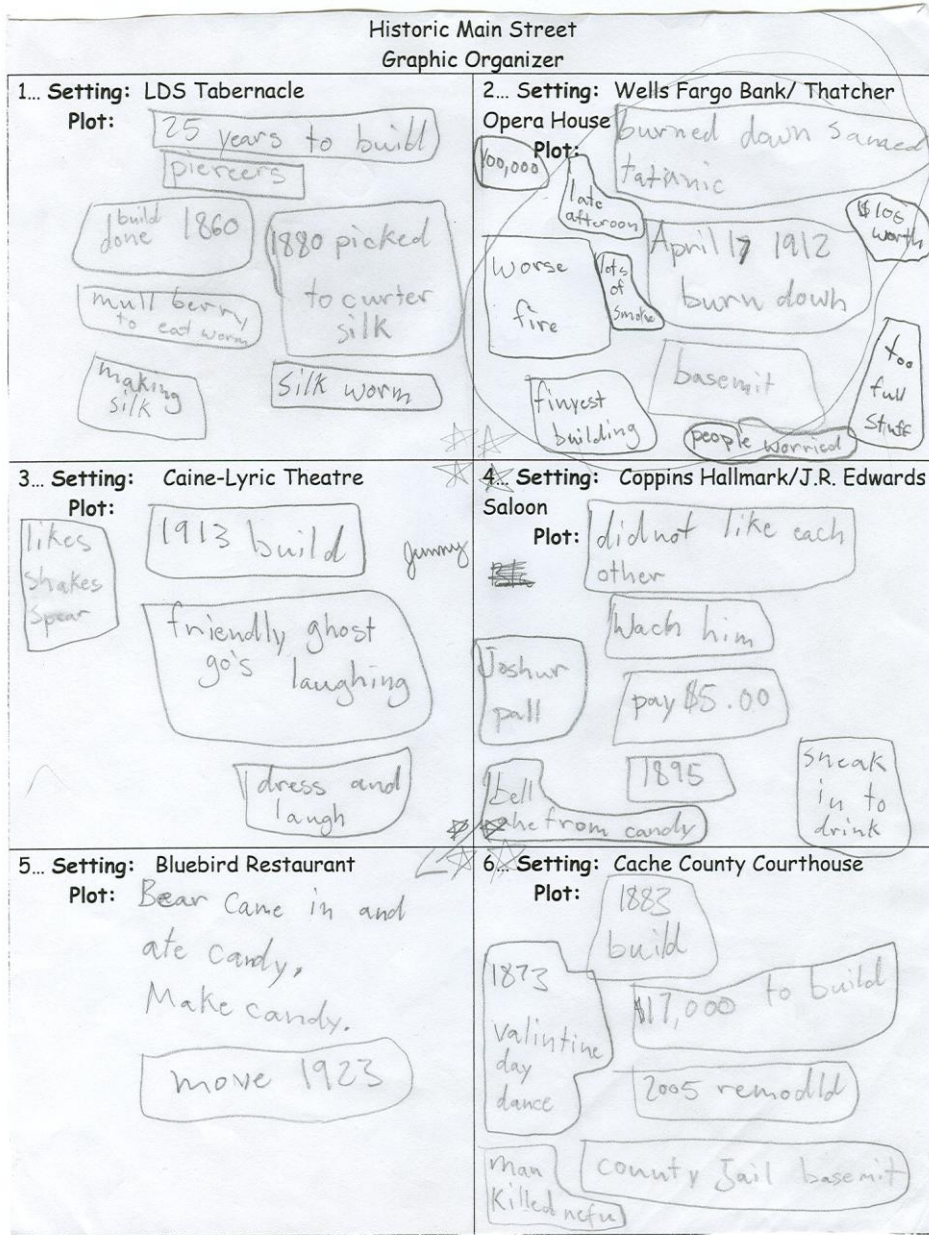 Historic Main Street
Graphic Organizer
1... Setting: LDS Tabernacle
Plot:
25 years to build
build
done 1860
1880 picked
to
silk
mull berry
to eat worm
making
silk
silk worm
2... Setting: Wells Fargo Bank/ Thatcher
Opera House
Plot:
burned down
tatinic
100,000
late
afternoon
$100
worth
worse
fire
lots
of
smoke
April 17 1912
burn down
finyest
building
basemit
too
full
stuff
people worried
3... Setting: Caine-Lyric Theatre
Plot:
likes
shakes
spear
1913 build
friendly ghost
go's laughing
dress and
laugh
4... Setting: Coppins Hallmark/J.R. Edwards
Saloon
Plot:
did not like each
other
Wach him
Joshur
pall
pay $5.00
1895
bell
from candy
sneak
in to
drink
5... Setting: Bluebird Restaurant
Plot:
Bear came in and
ate candy,
Make candy.
move 1923
6... Setting: Cache County Courthouse
Plot:
1883
build
1873
valintine
day
dance
$17,000 to build
2005 remodld
man
killed nefu
county Jail basemit